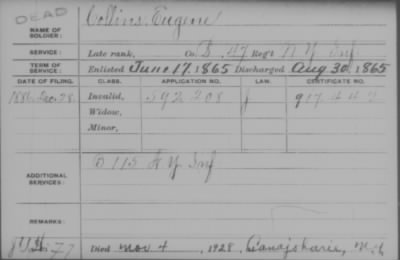 DEAD
NAME OF SOLDIER: Collins, Eugene
SERVICE: Late rank, Co. B, 47 Reg't N Y Inf
TERM OF SERVICE: Enlisted June 17, 1865 Discharged Aug 30, 1865
DATE OF FILING. CLASS. APPLICATION NO. LAW. CERTIFICATE NO.
1886, Dec. 28. Invalid, 592208
Widow,
Minor,
ADDITIONAL SERVICES: 115 N Y Inf
REMARKS:
Died Nov 4, 1928, Canajoharie, N.Y.